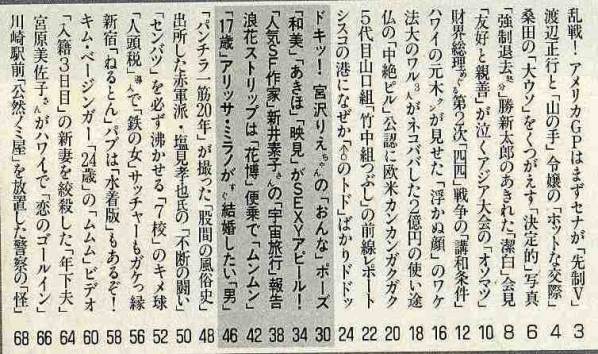 乱戦!アメリカGPはまずセナが「先制V」 3
渡辺正行と「山の手」令嬢の「ホットな交際」 4
桑田の「大ウソ」をくつがえす「決定的」写真 6
「強制退去」処分 勝新太郎のあきれた「潔白」会見 8
「友好と親善」が泣くアジア大会の「オソマツ」 10
財界総理めぐる第2次「四四」戦争の「講和条件」 12
ハワイの元木クンが見せた「浮かぬ顔」のワケ 16
法大のワル3人がネコババした2億円の使い途 18
仏の「中絶ピル」公認に欧米カンカンガクガク 20
5代目山口組「竹中組つぶし」の前線レポート 22
シスコの港になぜか「のトド」ばかりドドッ 24
ドキッ!宮沢りえちゃんの「おんな」ポーズ 30
「和美」「あきほ」「映見」がSEXYアピール! 34
「人気SF作家」新井素子さんの「宇宙旅行」報告 38
浪花ストリップは「花博」便乗で「ムンムン」 42
「17歳」アリッサ・ミラノがすぐ結婚したい「男」 46
「パンチラ一筋20年」が撮った「股間の風俗史」 48
出所した赤軍派・塩見孝也氏の「不断の闘い」 50
「センバツ」を必ず沸かせる「7校」のキメ球 52
「人頭税」導入で「鉄の女」サッチャーもガケっ縁 56
新宿「ねるとん」パブは「水着版」もあるぞ! 58
キム・ベージンガー「24歳」の「ムムム」ビデオ 60
「入籍3日目」の新妻を絞殺した「年下夫」 64
宮原美佐子さんがハワイで「恋のゴールイン」 66
川崎駅前「公然ノミ屋」を放置した警察の「怪」 68